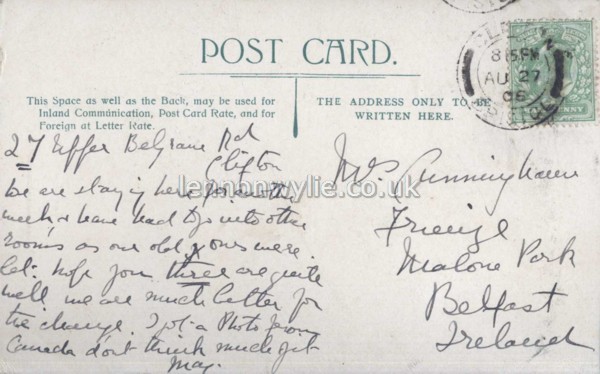 POST CARD.
This Space as well as the Back, may be used for
Inland Communication, Post Card Rate, and for
Foreign at Letter Rate.
THE ADDRESS ONLY TO BE
WRITTEN HERE.
CLIFTON
8 15 PM
AU 27
06
BRISTOL
PENNY
27 Upper Belgrave Rd
Clifton
We are staying here for another
week & have had to go into other
rooms as our old ones were
let. hope you three are quite
well we are much better for
the change. I got a Photo from
Canada don't think much of it
May.
Mrs Cunningham
Malone Park
Belfast
Ireland
lennonwylie.co.uk